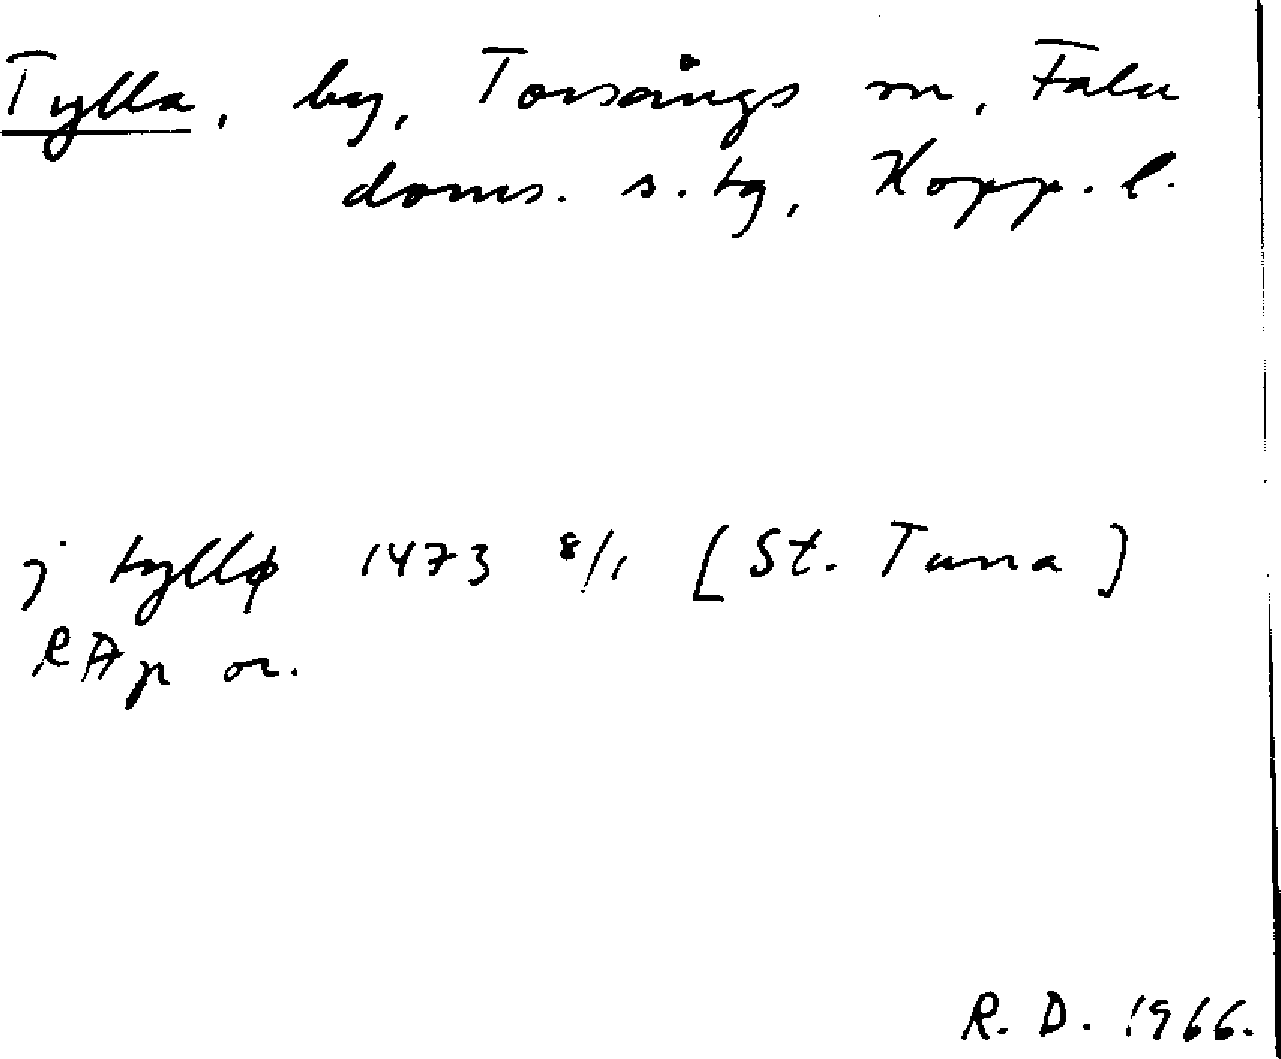 Tylla, by, Torsångs sn, Falu
doms. s. tg, Kopp. l.
j tyllø 1473 8/1 [St. Tuna]
RAp or.
R. D. 1966.